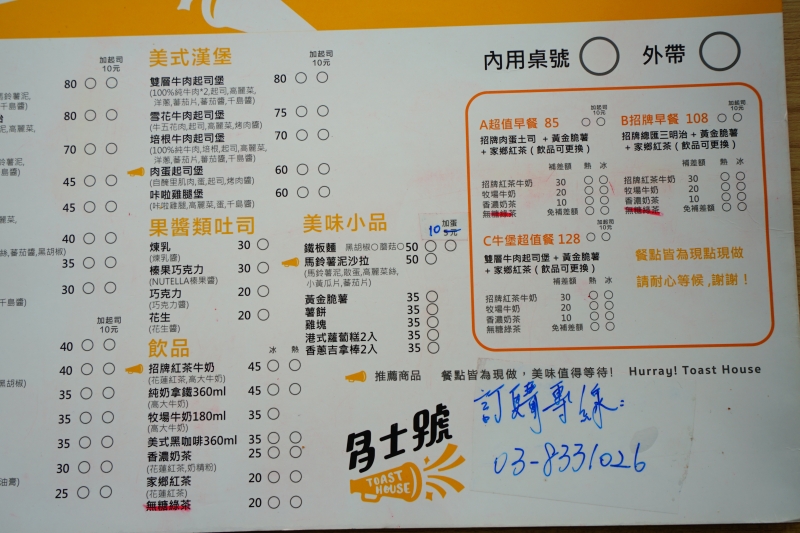 加起司
10元
80
鈴薯泥,
千島醬)
80
70
薯泥,
45
45
40
絲,蕃茄醬,黑胡椒)
35
30
加起司
10元
40
40
黑胡椒)
35
35
35
30
油膏)
25
美式漢堡
加起司
10元
雙層牛肉起司堡 80
(100%純牛肉*2,起司,高麗菜,
洋蔥,蕃茄片,蕃茄醬,千島醬)
雪花牛肉起司堡 75
(牛五花肉,起司,高麗菜,烤肉醬)
培根牛肉起司堡 70
(100%純牛肉,培根,起司,高麗菜,
洋蔥,蕃茄片,蕃茄醬,千島醬)
肉蛋起司堡 60
(自醃里肌肉,蛋,起司,烤肉醬)
咔啦雞腿堡 60
(咔啦雞腿,高麗菜,蛋,千島醬)
果醬類吐司
煉乳 30
(煉乳醬)
榛果巧克力 30
(NUTELLA榛果醬)
巧克力 20
(巧克力醬)
花生 20
(花生醬)
飲品
冰 熱
招牌紅茶牛奶 45
(花蓮紅茶,高大牛奶)
純奶拿鐵360ml 45
(高大牛奶)
牧場牛奶180ml 35
(高大牛奶)
美式黑咖啡360ml 35
香濃奶茶 25
(花蓮紅茶,奶精粉)
家鄉紅茶 20
(花蓮紅茶)
無糖綠茶 20
美味小品
加蛋
10 5元
鐵板麵 黑胡椒○蘑菇○ 50
馬鈴薯泥沙拉 50
(馬鈴薯泥,散蛋,高麗菜絲,
小黃瓜片,蕃茄片)
黃金脆薯 35
薯餅 35
雞塊 35
港式蘿蔔糕2入 35
香蔥吉拿棒2入 35
推薦商品 餐點皆為現做,美味值得等待! Hurray! Toast House
多士號
TOAST
HOUSE
訂購專線:
03-8331026
內用桌號 外帶
A超值早餐 85
加起司
10元
招牌肉蛋土司 + 黃金脆薯
+ 家鄉紅茶 ( 飲品可更換 )
補差額 熱 冰
招牌紅茶牛奶 30
牧場牛奶 20
香濃奶茶 10
無糖綠茶 免補差額
B招牌早餐 108
加起司
10元
招牌總匯三明治 + 黃金脆薯
+ 家鄉紅茶 ( 飲品可更換 )
補差額 熱 冰
招牌紅茶牛奶 30
牧場牛奶 20
香濃奶茶 10
無糖綠茶 免補差額
C牛堡超值餐 128
加起司
10元
雙層牛肉起司堡 + 黃金脆薯
+ 家鄉紅茶 ( 飲品可更換 )
補差額 熱 冰
招牌紅茶牛奶 30
牧場牛奶 20
香濃奶茶 10
無糖綠茶 免補差額
餐點皆為現點現做
請耐心等候 ,謝謝 !